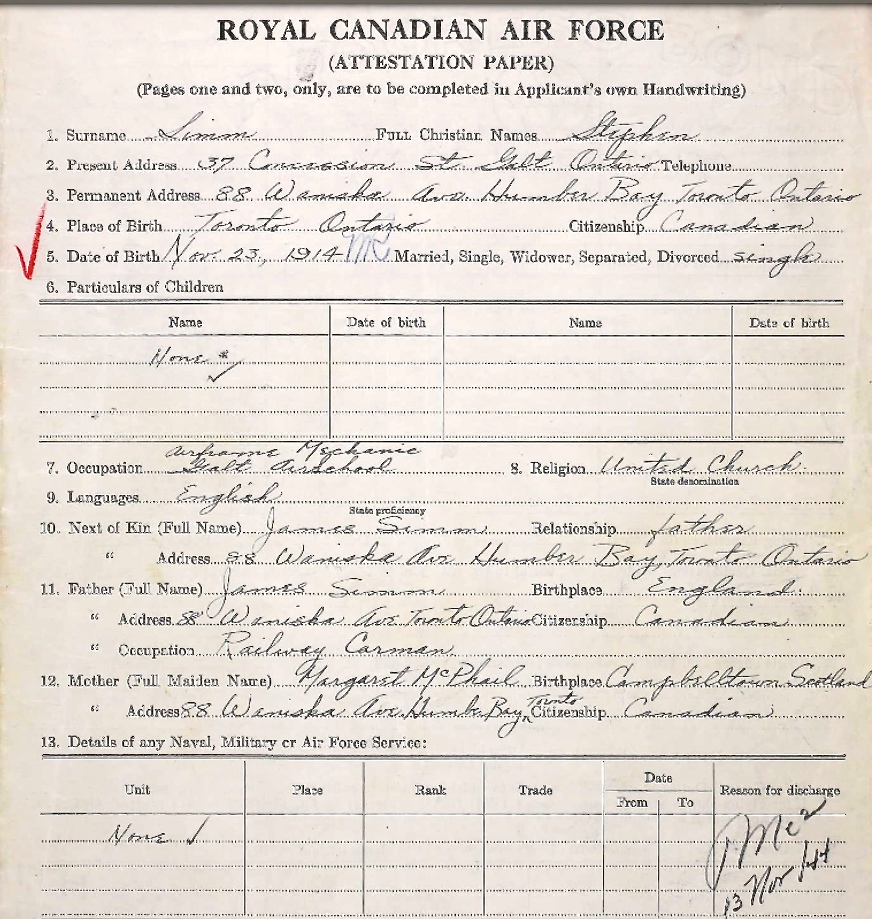 ROYAL CANADIAN AIR FORCE
(ATTESTATION PAPER)
(Pages one and two, only, are to be completed in Applicant's own Handwriting)
1. Surname Simm FULL Christian Names Stephen
2. Present Address 37 Concession St Galt Ontario Telephone
3. Permanent Address 88 Waniska Ave Humber Bay Toronto Ontario
4. Place of Birth Toronto Ontario Citizenship Canadian
5. Date of Birth Nov. 23, 1914 Married, Single, Widower, Separated, Divorced single
6. Particulars of Children
Name Date of birth Name Date of birth
None
Airframe Mechanic
7. Occupation Galt Airschool 8. Religion United Church
State denomination
9. Languages English
State proficiency
10. Next of Kin (Full Name) James Simm Relationship father
" Address 88 Waniska Ave Humber Bay, Toronto Ontario
11. Father (Full Name) James Simm Birthplace England
" Address 88 Waniska Ave Toronto Ontario Citizenship Canadian
" Occupation Railway Carman
12. Mother (Full Maiden Name) Margaret McPhail Birthplace Campbelltown Scotland
" Address 88 Waniska Ave. Humber Bay, Toronto Citizenship Canadian
13. Details of any Naval, Military or Air Force Service:
Unit Place Rank Trade Date Reason for discharge
From To
None
13 Nov 44